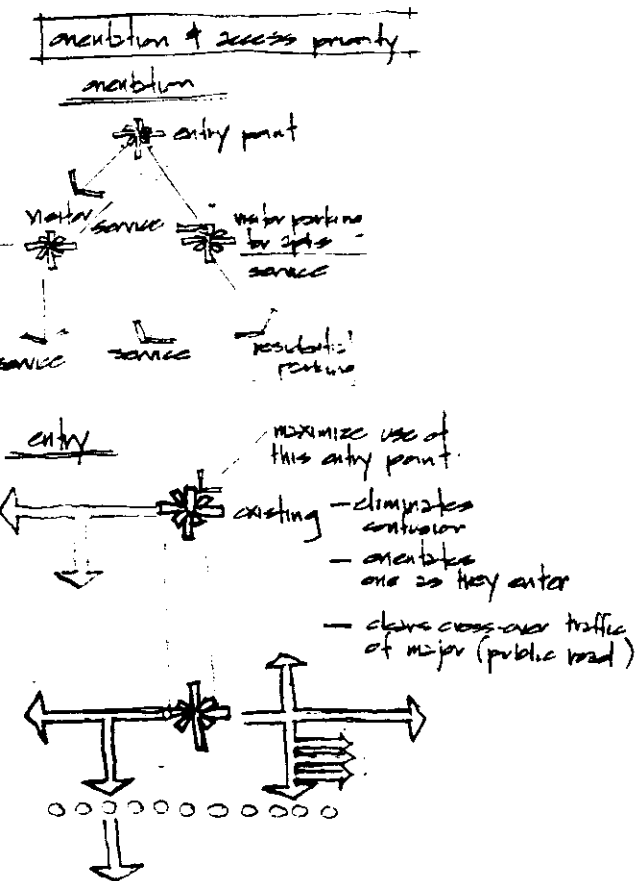 orientation & access priority
orientation
entry point
visitor
service
visitor parking
for apts
service
service
service
residential
parking
entry
maximize use of
this entry point
existing
– eliminates
confusion
– orientates
one as they enter
– clears cross-over traffic
of major (public road)